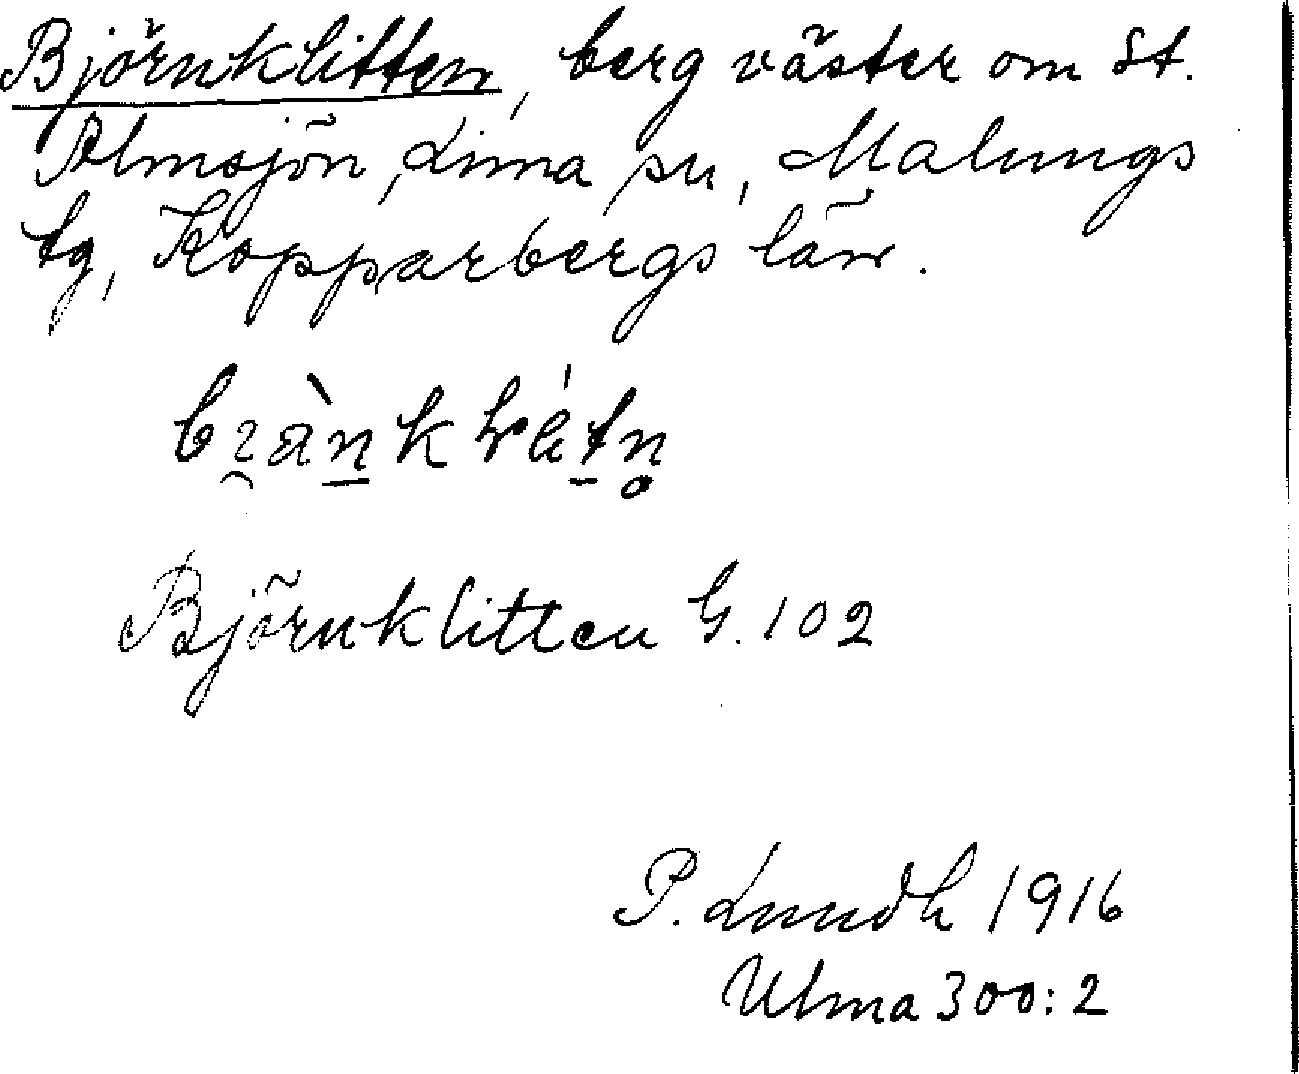 Björnklitten, berg väster om St.
Almsjön, Lima sn, Malungs
tg, Kopparbergs län.
Björnklitten G. 102
P. Lundh 1916
Ulma 300:2